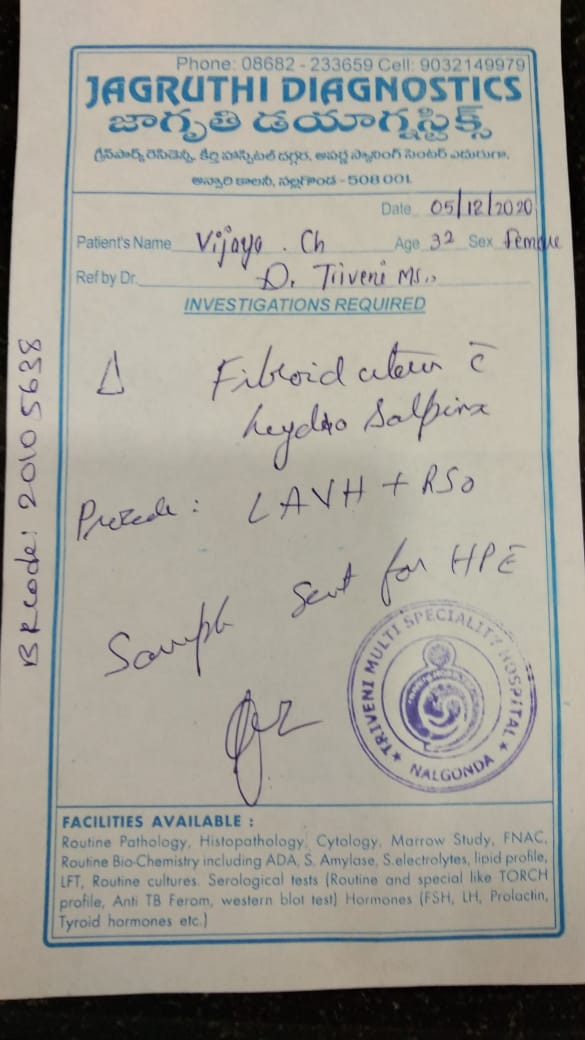 Phone: 08682 - 233659 Cell: 9032149979
JAGRUTHI DIAGNOSTICS
జాగృతి డయాగ్నస్టిక్స్
గ్రీన్‌పార్క్ రెసిడెన్సి, కీర్తి హాస్పిటల్ దగ్గర, అపర్ణ స్కానింగ్ సెంటర్ ఎదురుగా,
అన్సారి కాలని, నల్లగొండ - 508 001.
Date 05/12/2020
Patient's Name Vijaya . Ch Age 32 Sex Female
Ref by Dr. D. Triveni Ms.,
INVESTIGATIONS REQUIRED
Δ Fibroid uterus c̄
hydro Salpinx
: LAVH + RSO
Sample sent for HPE
BRcode: 20105638
TRIVENI MULTI SPECIALITY HOSPITAL
NALGONDA
FACILITIES AVAILABLE :
Routine Pathology, Histopathology, Cytology, Marrow Study, FNAC,
Routine Bio-Chemistry including ADA, S. Amylase, S.electrolytes, lipid profile,
LFT, Routine cultures. Serological tests (Routine and special like TORCH
profile, Anti TB Ferom, western blot test) Hormones (FSH, LH, Prolactin,
Tyroid hormones etc.)